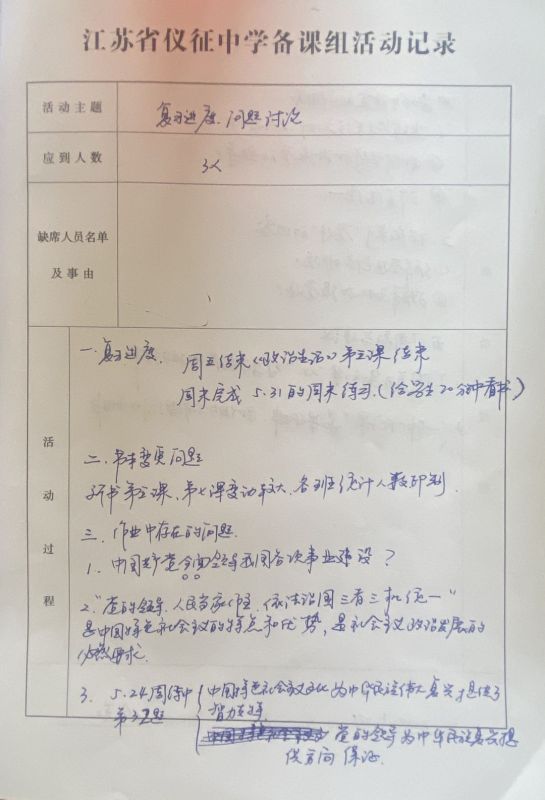 江苏省仪征中学备课组活动记录
活动主题
复习进度、问题讨论
应到人数
3人
缺席人员名单
及事由
活动过程
一.复习进度.
周五结束《政治生活》第三课结束
周末完成 5.31的周末练习.(给学生20分钟看书)
二.书本变更问题
新书第三课、第七课变动较大.各班统计人数印制
三.作业中存在的问题.
1.中国共产党全面领导我国各项事业建设?
2."党的领导、人民当家作主、依法治国三者三机统一"
是中国特色社会主义的特点和优势,是社会主义政治发展的
必然要求.
3. 5.24周练中
第32题
中国特色社会主义文化为中华民族伟大复兴提供了
智力支持.
党的领导为中华民族复兴提
供方向保证.